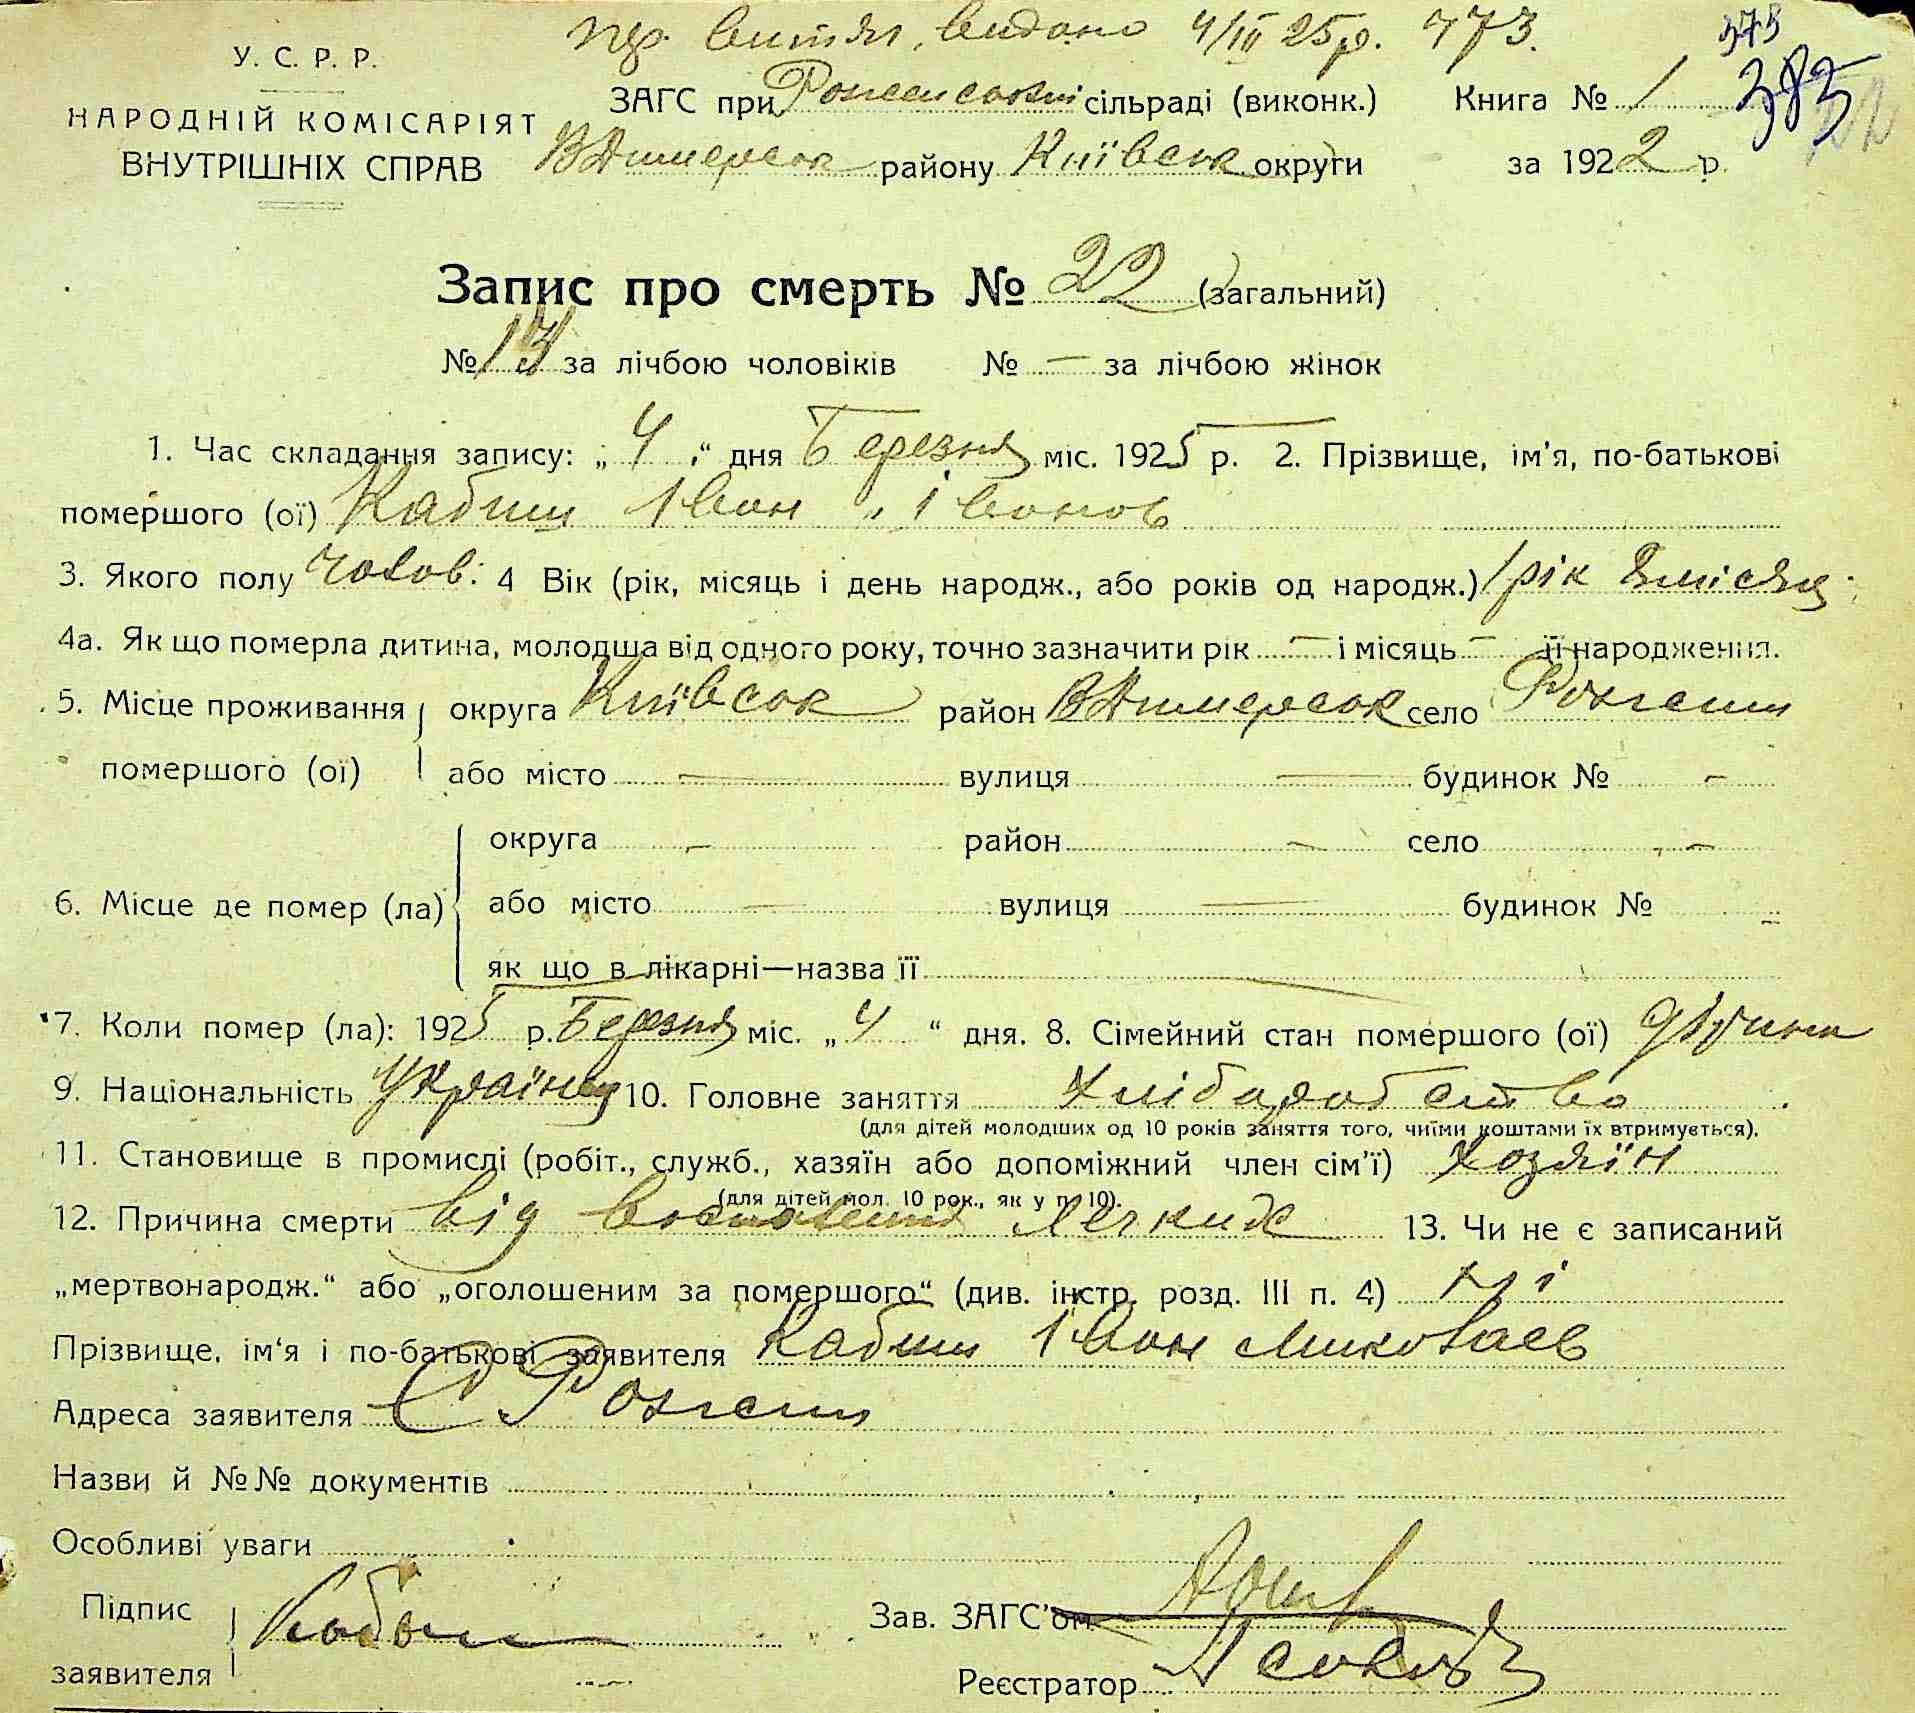 витяг видано 4/III 25 р. 473.
373
У. С. Р. Р.
НАРОДНІЙ КОМІСАРІЯТ
ВНУТРІШНІХ СПРАВ
ЗАГС при сільраді (виконк.) Книга № 1 383
ВДимерськ району Київськ округи за 1922 р.
Запис про смерть № 22 (загальний)
№ 13 за лічбою чоловіків № — за лічбою жінок
1. Час складання запису: „4“ дня Березня міс. 1925 р. 2. Прізвище, ім'я, по-батькові
помершого (ої) Кабиш Іван Іванов
3. Якого полу Чолов: 4 Вік (рік, місяць і день народж., або років од народж.) 1 рік місяц
4а. Як що померла дитина, молодша від одного року, точно зазначити рік — і місяць — її народження.
5. Місце проживання округа Київськ район ВДимерськ село Рожени
помершого (ої) або місто — вулиця — будинок № —
округа — район — село —
6. Місце де помер (ла) або місто — вулиця — будинок № —
як що в лікарні—назва її —
7. Коли помер (ла): 1925 р. Березня міс. „4“ дня. 8. Сімейний стан помершого (ої) дітина
9. Національність Українец 10. Головне заняття Хліборобство
(для дітей молодших од 10 років заняття того, чиїми коштами їх втримується).
11. Становище в промислі (робіт., служб., хазяїн або допоміжний член сім'ї) Хозяїн
(для дітей мол. 10 рок., як у п. 10).
12. Причина смерти від воспаления Легких 13. Чи не є записаний
„мертвонародж.“ або „оголошеним за помершого“ (див. інстр. розд. III п. 4) Ні
Прізвище, ім'я і по-батькові заявителя Кабиш Іван Миколаев
Адреса заявителя С Рожени
Назви й №№ документів
Особливі уваги
Підпис
заявителя Кабыш
Зав. ЗАГС'ом
Реєстратор